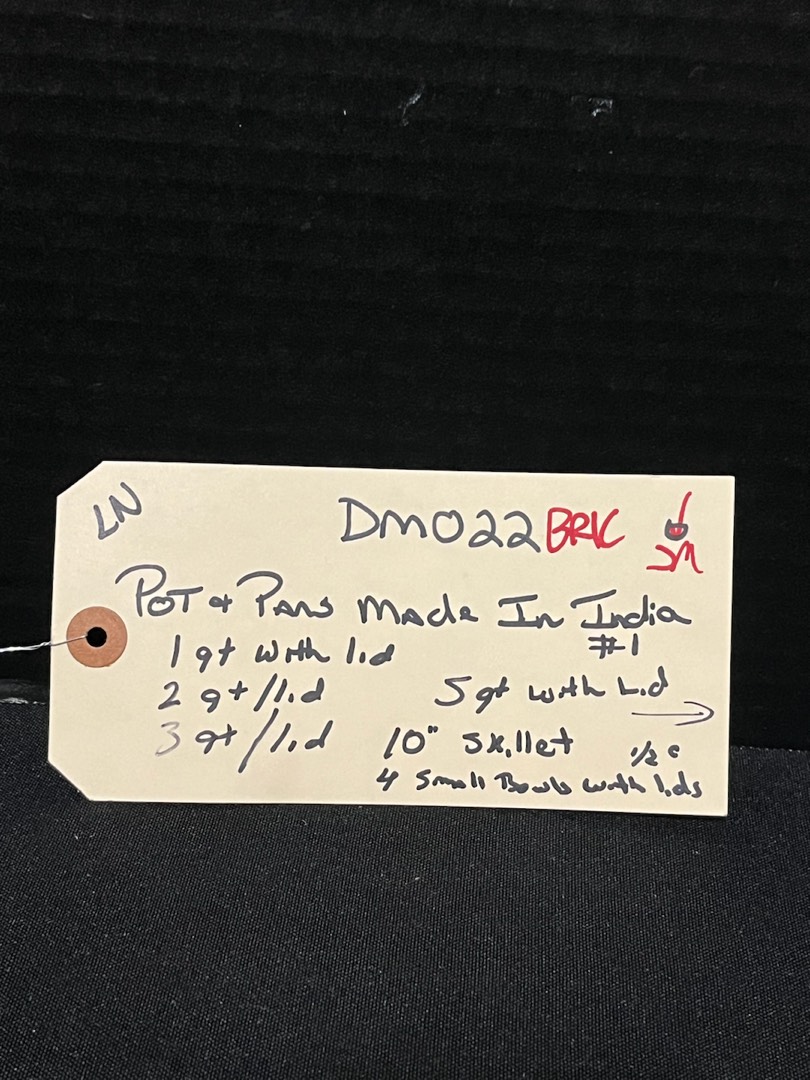 LN
DM022 BRK
JM
POT & PANS Made In India
#1
1 qt with lid
2 qt/lid 5 qt with Lid
3 qt/lid 10" Skillet 1/2 c
4 Small Bowls with lids